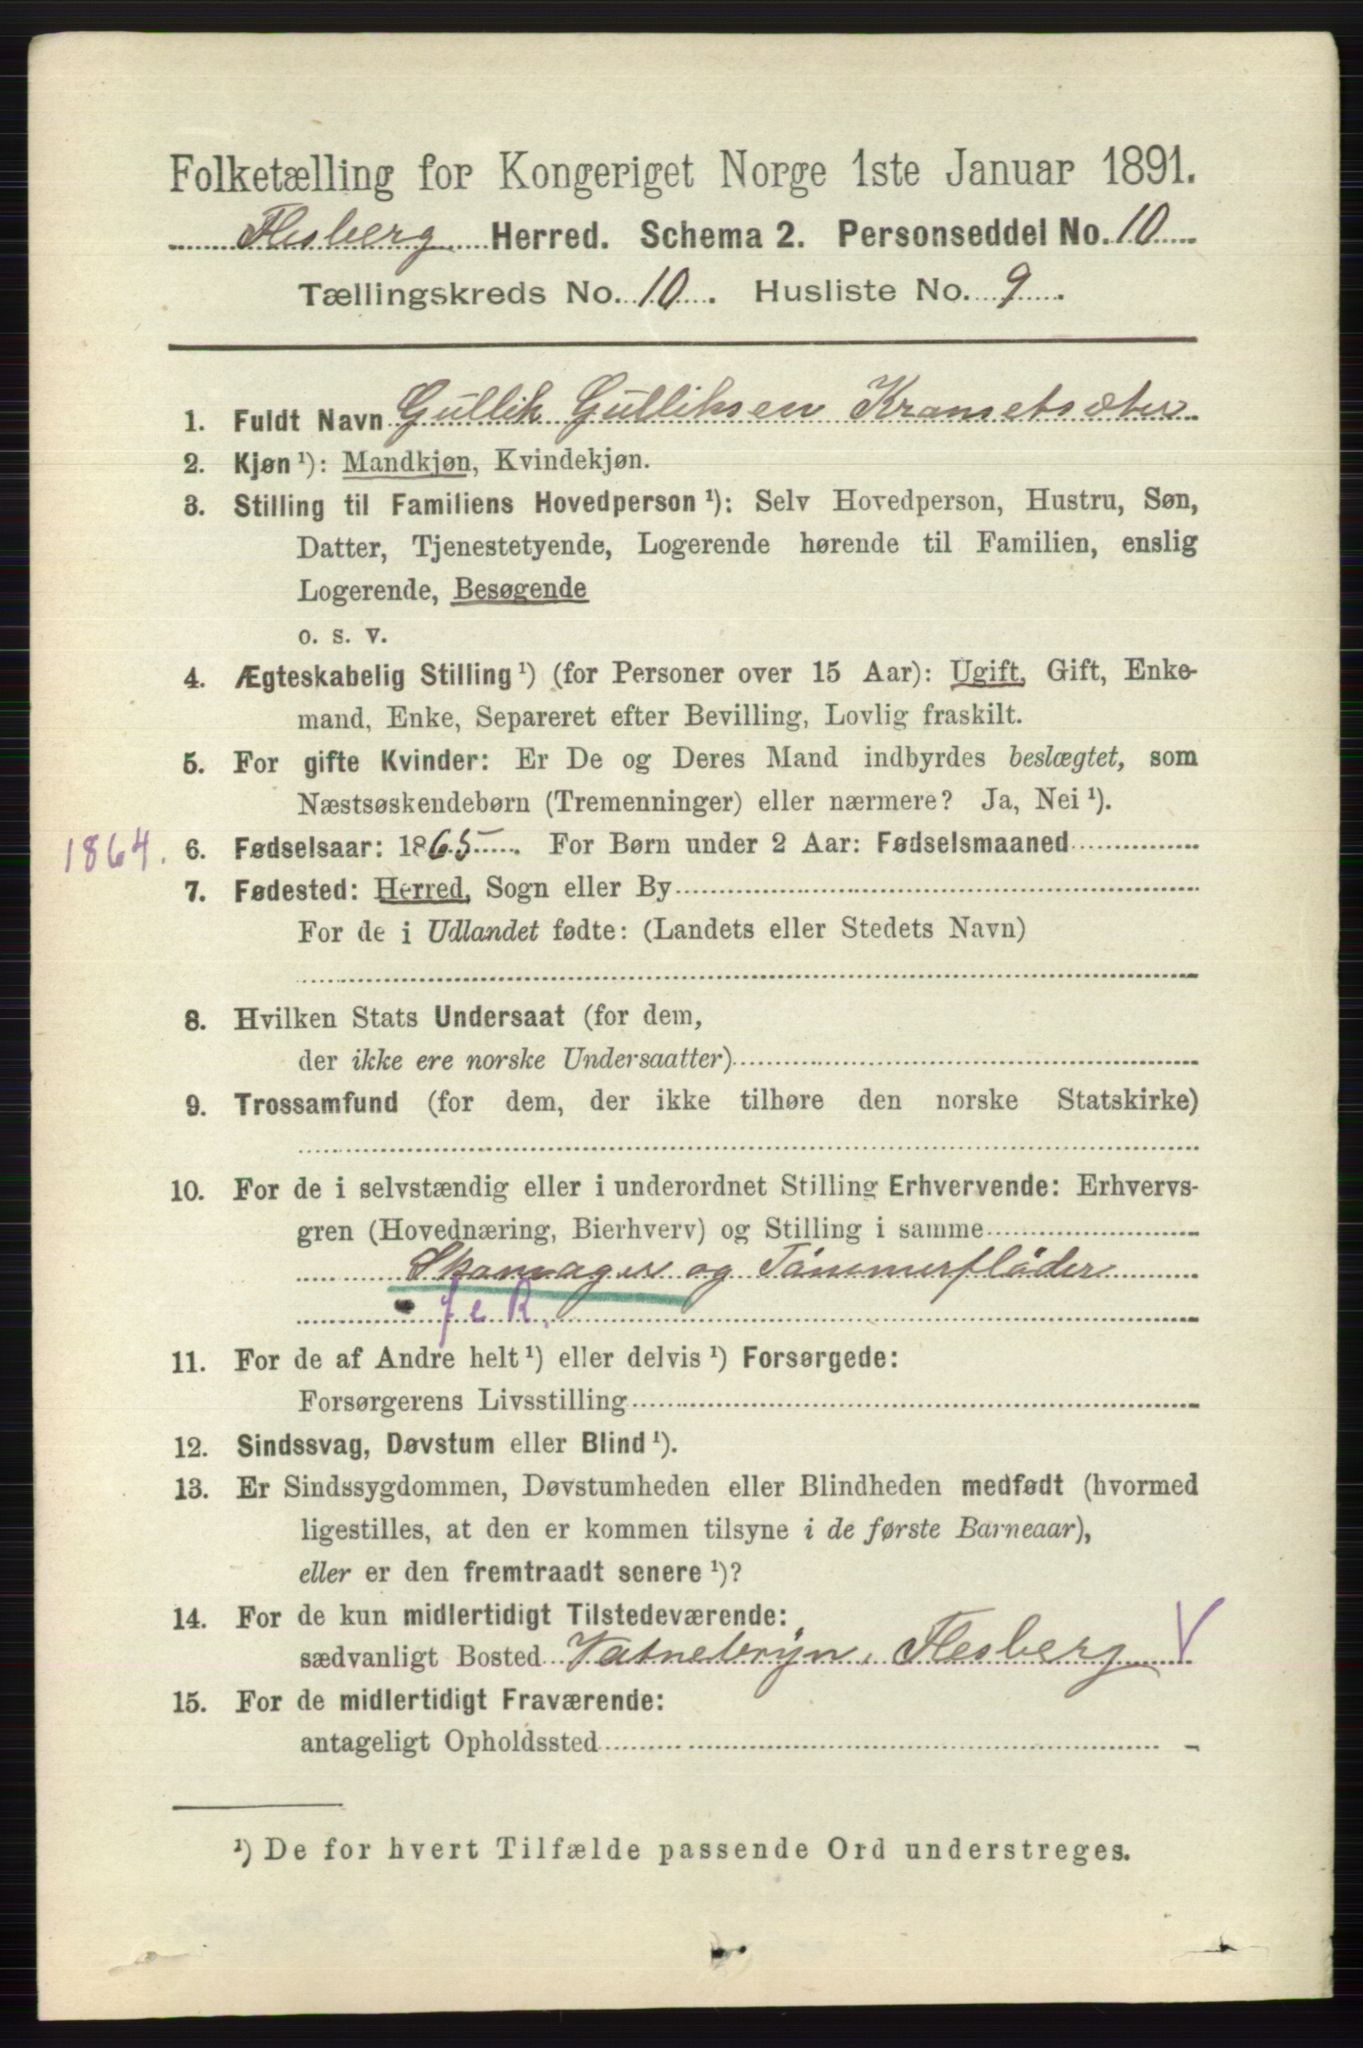 Folketælling for Kongeriget Norge 1ste Januar 1891.
Flesberg Herred. Schema 2. Personseddel No. 10
Tællingskreds No. 10. Husliste No. 9.
1. Fuldt Navn Gullik Gulliksen Kramsetsæter
2. Kjøn ¹): Mandkjøn, Kvindekjøn.
3. Stilling til Familiens Hovedperson ¹): Selv Hovedperson, Hustru, Søn,
Datter, Tjenestetyende, Logerende hørende til Familien, enslig
Logerende, Besøgende
o. s. v.
4. Ægteskabelig Stilling ¹) (for Personer over 15 Aar): Ugift, Gift, Enke-
mand, Enke, Separeret efter Bevilling, Lovlig fraskilt.
5. For gifte Kvinder: Er De og Deres Mand indbyrdes beslægtet, som
Næstsøskendebørn (Tremenninger) eller nærmere? Ja, Nei ¹).
1864. 6. Fødselsaar: 1865. For Børn under 2 Aar: Fødselsmaaned
7. Fødested: Herred, Sogn eller By
For de i Udlandet fødte: (Landets eller Stedets Navn)
8. Hvilken Stats Undersaat (for dem,
der ikke ere norske Undersaatter)
9. Trossamfund (for dem, der ikke tilhøre den norske Statskirke)
10. For de i selvstændig eller i underordnet Stilling Erhvervende: Erhvervs-
gren (Hovednæring, Bierhverv) og Stilling i samme
Skomager og Tømmerfløder
f e R.
11. For de af Andre helt ¹) eller delvis ¹) Forsørgede:
Forsørgerens Livsstilling
12. Sindssvag, Døvstum eller Blind ¹).
13. Er Sindssygdommen, Døvstumheden eller Blindheden medfødt (hvormed
ligestilles, at den er kommen tilsyne i de første Barneaar),
eller er den fremtraadt senere ¹)?
14. For de kun midlertidigt Tilstedeværende:
sædvanligt Bosted Vatnebryn, Flesberg V
15. For de midlertidigt Fraværende:
antageligt Opholdssted
¹) De for hvert Tilfælde passende Ord understreges.